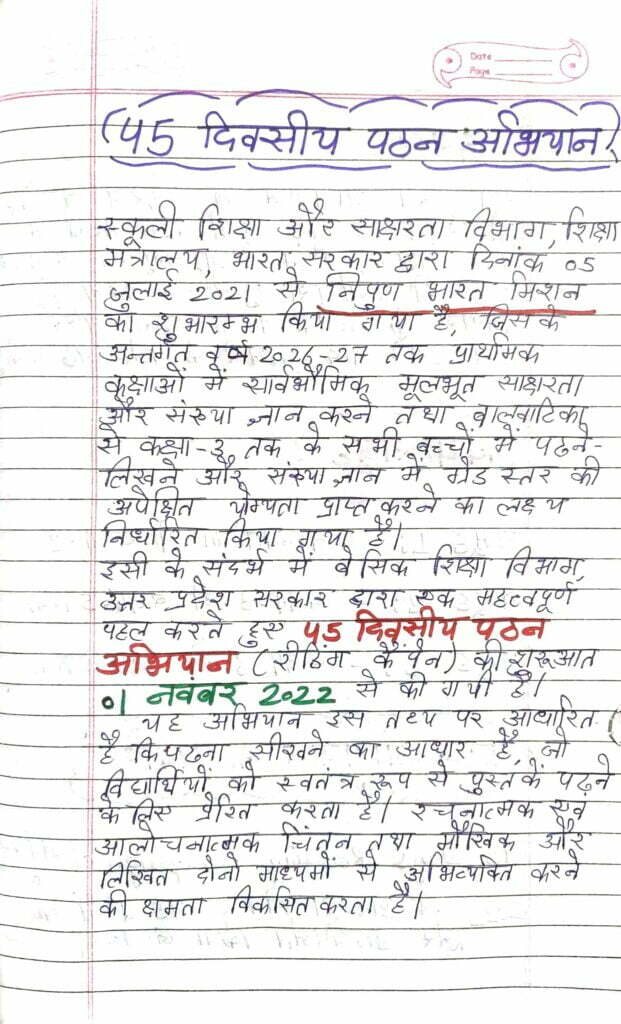 Date
Page
(45 दिवसीय पठन अभियान)
स्कूली शिक्षा और साक्षरता विभाग, शिक्षा
मंत्रालय, भारत सरकार द्वारा दिनांक 05
जुलाई 2021 से निपुण भारत मिशन
का शुभारम्भ किया गया है, जिसके
अन्तर्गत वर्ष 2026-27 तक प्राथमिक
कक्षाओं में सार्वभौमिक मूलभूत साक्षरता
और संख्या ज्ञान करने तथा बालवाटिका
से कक्षा-3 तक के सभी बच्चों में पढने-
लिखने और संख्या ज्ञान में ग्रेड स्तर की
अपेक्षित योग्यता प्राप्त करने का लक्ष्य
निर्धारित किया गया है।
इसी के संदर्भ में बेसिक शिक्षा विभाग,
उत्तर प्रदेश सरकार द्वारा एक महत्वपूर्ण
पहल करते हुए 45 दिवसीय पठन
अभियान (रीडिंग कैंपेन) की शुरूआत
01 नवंबर 2022 से की गयी है।
यह अभियान इस तथ्य पर आधारित
है कि पढना सीखने का आधार है, जो
विद्यार्थियों को स्वतंत्र रूप से पुस्तकें पढ़ने
के लिए प्रेरित करता है। रचनात्मक एवं
आलोचनात्मक चिंतन तथा मौखिक और
लिखित दोनो माध्यमों से अभिव्यक्ति करने
की क्षमता विकसित करता है।